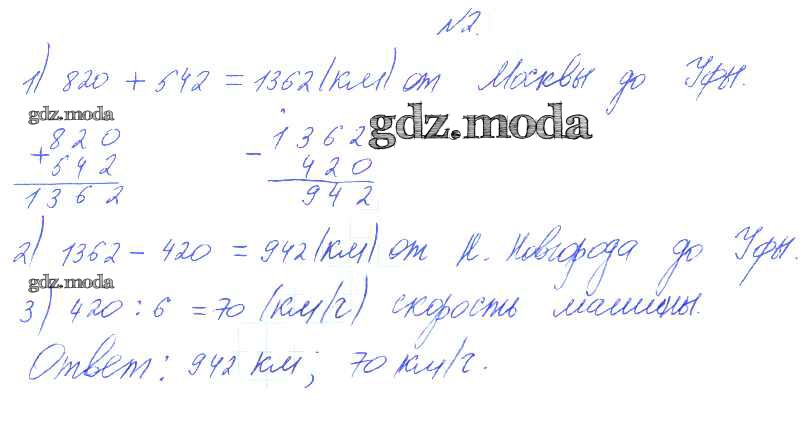 №2.
1) 820 + 542 = 1362 (км) от Москвы до Уфы.
gdz.moda
gdz.moda
820
+ 542
1362
1362
- 420
942
2) 1362 - 420 = 942 (км) от Н. Новгорода до Уфы.
gdz.moda
3) 420 : 6 = 70 (км/ч) скорость машины.
Ответ: 942 км; 70 км/ч.